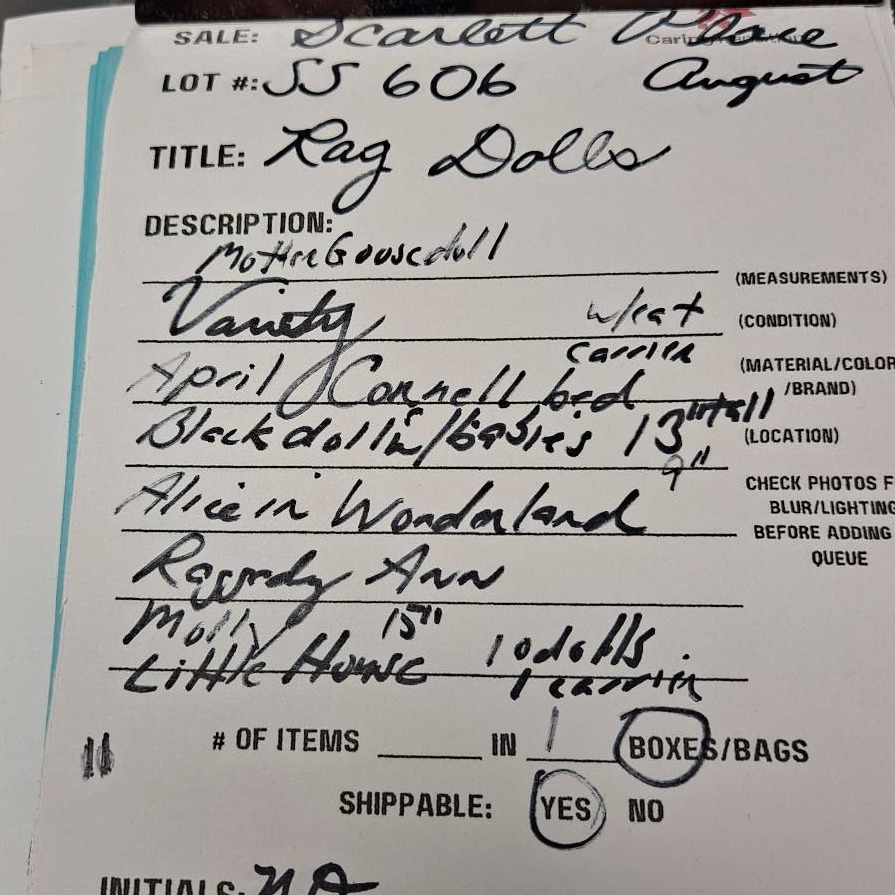 SALE: Scarlett Place
LOT #: SS 606 August
TITLE: Rag Dolls
DESCRIPTION:
Mother Goose doll
(MEASUREMENTS)
Variety w/cat
carrier
(CONDITION)
April Cornell bed
(MATERIAL/COLOR
/BRAND)
Black doll w/babies 13" tall
9"
(LOCATION)
Alice in Wonderland
CHECK PHOTOS F
BLUR/LIGHTING
BEFORE ADDING
QUEUE
Raggedy Ann
Molly 15"
Little House 10 dolls
1 carrier
11 # OF ITEMS ____ IN 1 BOXES/BAGS
SHIPPABLE: YES NO
INITIALS: